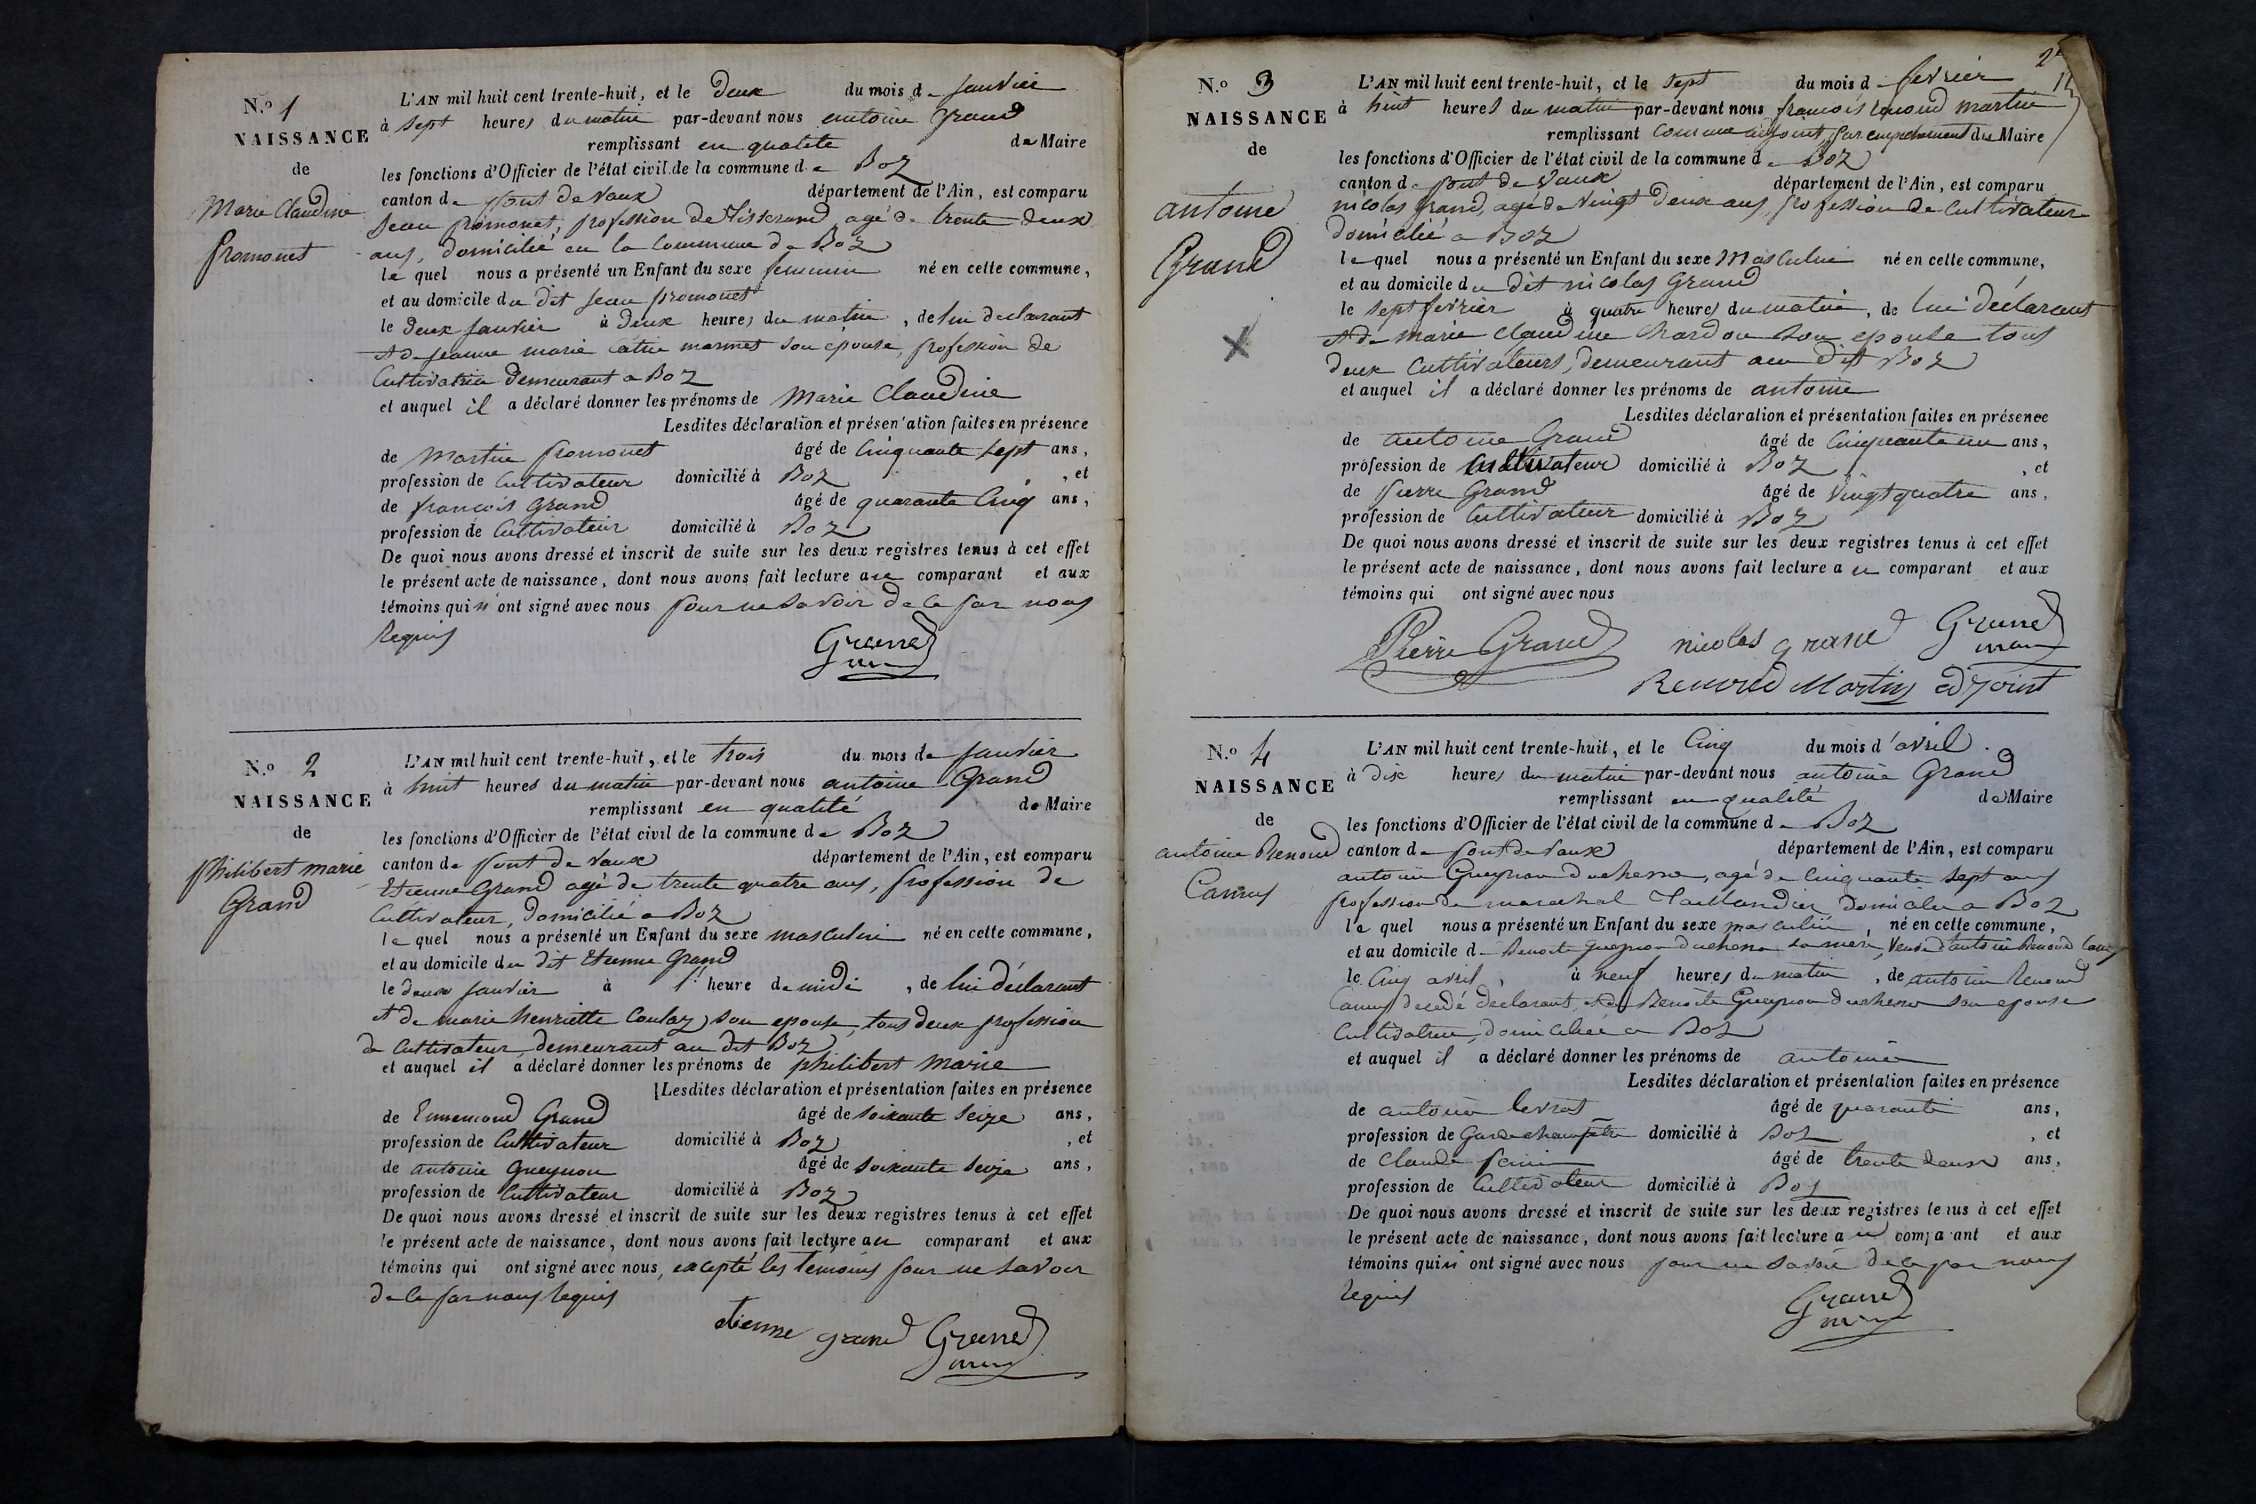 N.º 1
NAISSANCE
de
Marie Claudine
promonet
L'AN mil huit cent trente-huit, et le deux du mois de janvier
à sept heures du matin par-devant nous antoine Grand
remplissant en qualité de Maire
les fonctions d'Officier de l'état civil de la commune de Boz
canton de pont de vaux département de l'Ain, est comparu
jean promonet, profession de tisserand agé de trente deux
ans, domicilié en la commune de Boz
le quel nous a présenté un Enfant du sexe feminin né en cette commune,
et au domicile du dit jean promonet
le deux janvier à deux heures du matin, de lui declarant
et de jeanne marie catrie marmet son epouse, profession de
cultivatrice demeurant a Boz
et auquel il a déclaré donner les prénoms de Marie Claudine
Lesdites déclaration et présentation faites en présence
de Martin promonet âgé de cinquante sept ans,
profession de cultivateur domicilié à Boz, et
de françois Grand âgé de quarante cinq ans,
profession de cultivateur domicilié à Boz
De quoi nous avons dressé et inscrit de suite sur les deux registres tenus à cet effet
le présent acte de naissance, dont nous avons fait lecture au comparant et aux
témoins qui n'ont signé avec nous pour ne savoir de ce par nous
requis
Grand
N.º 2
NAISSANCE
de
philibert marie
Grand
L'AN mil huit cent trente-huit, et le trois du mois de janvier
à huit heures du matin par-devant nous antoine Grand
remplissant en qualité de Maire
les fonctions d'Officier de l'état civil de la commune de Boz
canton de pont de vaux département de l'Ain, est comparu
Etienne Grand agé de trente quatre ans, profession de
cultivateur, domicilié a Boz
le quel nous a présenté un Enfant du sexe masculin né en cette commune,
et au domicile du dit Etienne Grand
le deux janvier à 1 heure de midi, de lui déclarant
et de marie henriette Coulaz son epouse, tous deux profession
de cultivateur demeurant au dit Boz
et auquel il a déclaré donner les prénoms de philibert marie
Lesdites déclaration et présentation faites en présence
de Ennemond Grand âgé de soixante seize ans,
profession de cultivateur domicilié à Boz, et
de antoine gueynon âgé de soixante seize ans,
profession de cultivateur domicilié à Boz
De quoi nous avons dressé et inscrit de suite sur les deux registres tenus à cet effet
le présent acte de naissance, dont nous avons fait lecture au comparant et aux
témoins qui ont signé avec nous, excepté les temoins pour ne savoir
de ce par nous requis
etienne grand Grand
2
N.º 3
NAISSANCE
de
antoine
Grand
L'AN mil huit cent trente-huit, et le sept du mois de fevrier
à huit heures du matin par-devant nous françois renoud martin
remplissant comme adjoint par empechement du Maire
les fonctions d'Officier de l'état civil de la commune de Boz
canton de pont de vaux département de l'Ain, est comparu
nicolas grand, agé de vingt deux ans, profession de cultivateur
domicilié a Boz
le quel nous a présenté un Enfant du sexe Masculin né en cette commune,
et au domicile du dit nicolas Grand
le sept fevrier à quatre heures du matin, de lui déclarant
et de marie claudine Chardon son epouse tous
deux cultivateurs, demeurant au dit Boz
et auquel il a déclaré donner les prénoms de antoine
Lesdites déclaration et présentation faites en présence
de antoine Grand âgé de cinquante un ans,
profession de cultivateur domicilié à Boz, et
de pierre Grand âgé de vingt quatre ans,
profession de cultivateur domicilié à Boz
De quoi nous avons dressé et inscrit de suite sur les deux registres tenus à cet effet
le présent acte de naissance, dont nous avons fait lecture au comparant et aux
témoins qui ont signé avec nous
Pierre Grand nicolas grand Grand
Renoud Martin adjoint
N.º 4
NAISSANCE
de
antoine Renoud
Camus
L'AN mil huit cent trente-huit, et le cinq du mois d'avril
à dix heures du matin par-devant nous antoine Grand
remplissant en qualité de Maire
les fonctions d'Officier de l'état civil de la commune de Boz
canton de pont de vaux département de l'Ain, est comparu
antoine Gueynon duchesne, agé de cinquante sept ans
profession de marechal taillandier domicilié a Boz
le quel nous a présenté un Enfant du sexe masculin, né en cette commune,
et au domicile de Benoite gueynon duchesne sa mere, veuve d'antoine Renoud Camus
le cinq avril, à neuf heures du matin, de antoine Renoud
Camus decedé declarant, et de Benoite Gueynon duchesne son epouse
cultivatrice, domiciliée a Boz
et auquel il a déclaré donner les prénoms de antoine
Lesdites déclaration et présentation faites en présence
de antoine levrat âgé de quarante ans,
profession de Garde champetre domicilié à Boz, et
de claude âgé de trente deux ans,
profession de cultivateur domicilié à Boz
De quoi nous avons dressé et inscrit de suite sur les deux registres tenus à cet effet
le présent acte de naissance, dont nous avons fait lecture au comparant et aux
témoins qui n'ont signé avec nous pour ne savoir de ce par nous
requis
Grand